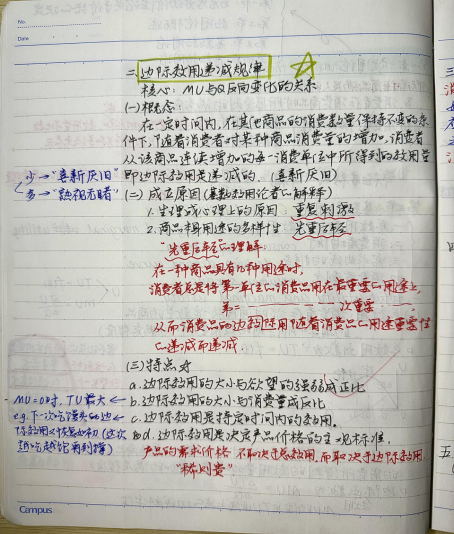 No.
Date
二.边际效用递减规律
核心：MU与Q反向变化的关系
(一)概念：
在一定时间内，在其他商品的消费数量保持不变的条
件下，随着消费者对某种商品消费量的增加，消费者
从该商品连续增加的每一消费单位中所得到的效用量
即边际效用是递减的．（喜新厌旧）
少→"喜新厌旧"
多→"熟视无睹"
(二)成立原因(基数效用论者的解释)
1.生理或心理上的原因 重复刺激
2.商品本身用途的多样性 先重后轻
"先重后轻"的理解
在一种商品具有几种用途时，
消费者总是将第一单位的消费品用在最重要的用途上，
第二 次重要
从而消费品的边际效用随着消费品的用途重要性
的递减而递减．
(三)特点
a.边际效用的大小与欲望的强弱成正比
b.边际效用的大小与消费量成反比
c.边际效用是特定时间内的效用。
d.边际效用是决定产品价值的主观标准．
MU=0时，TU最大←
e.g.下一次吃馒头的边←
际效用又恢复如初(这次
越吃越饱再到撑)
产品的需求价格 不取决于总效用，而取决于边际效用
Campus